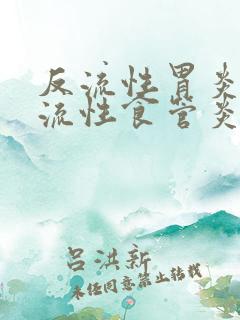 反流性胃炎
流性食管炎
吕洪新
未经同意禁止转载